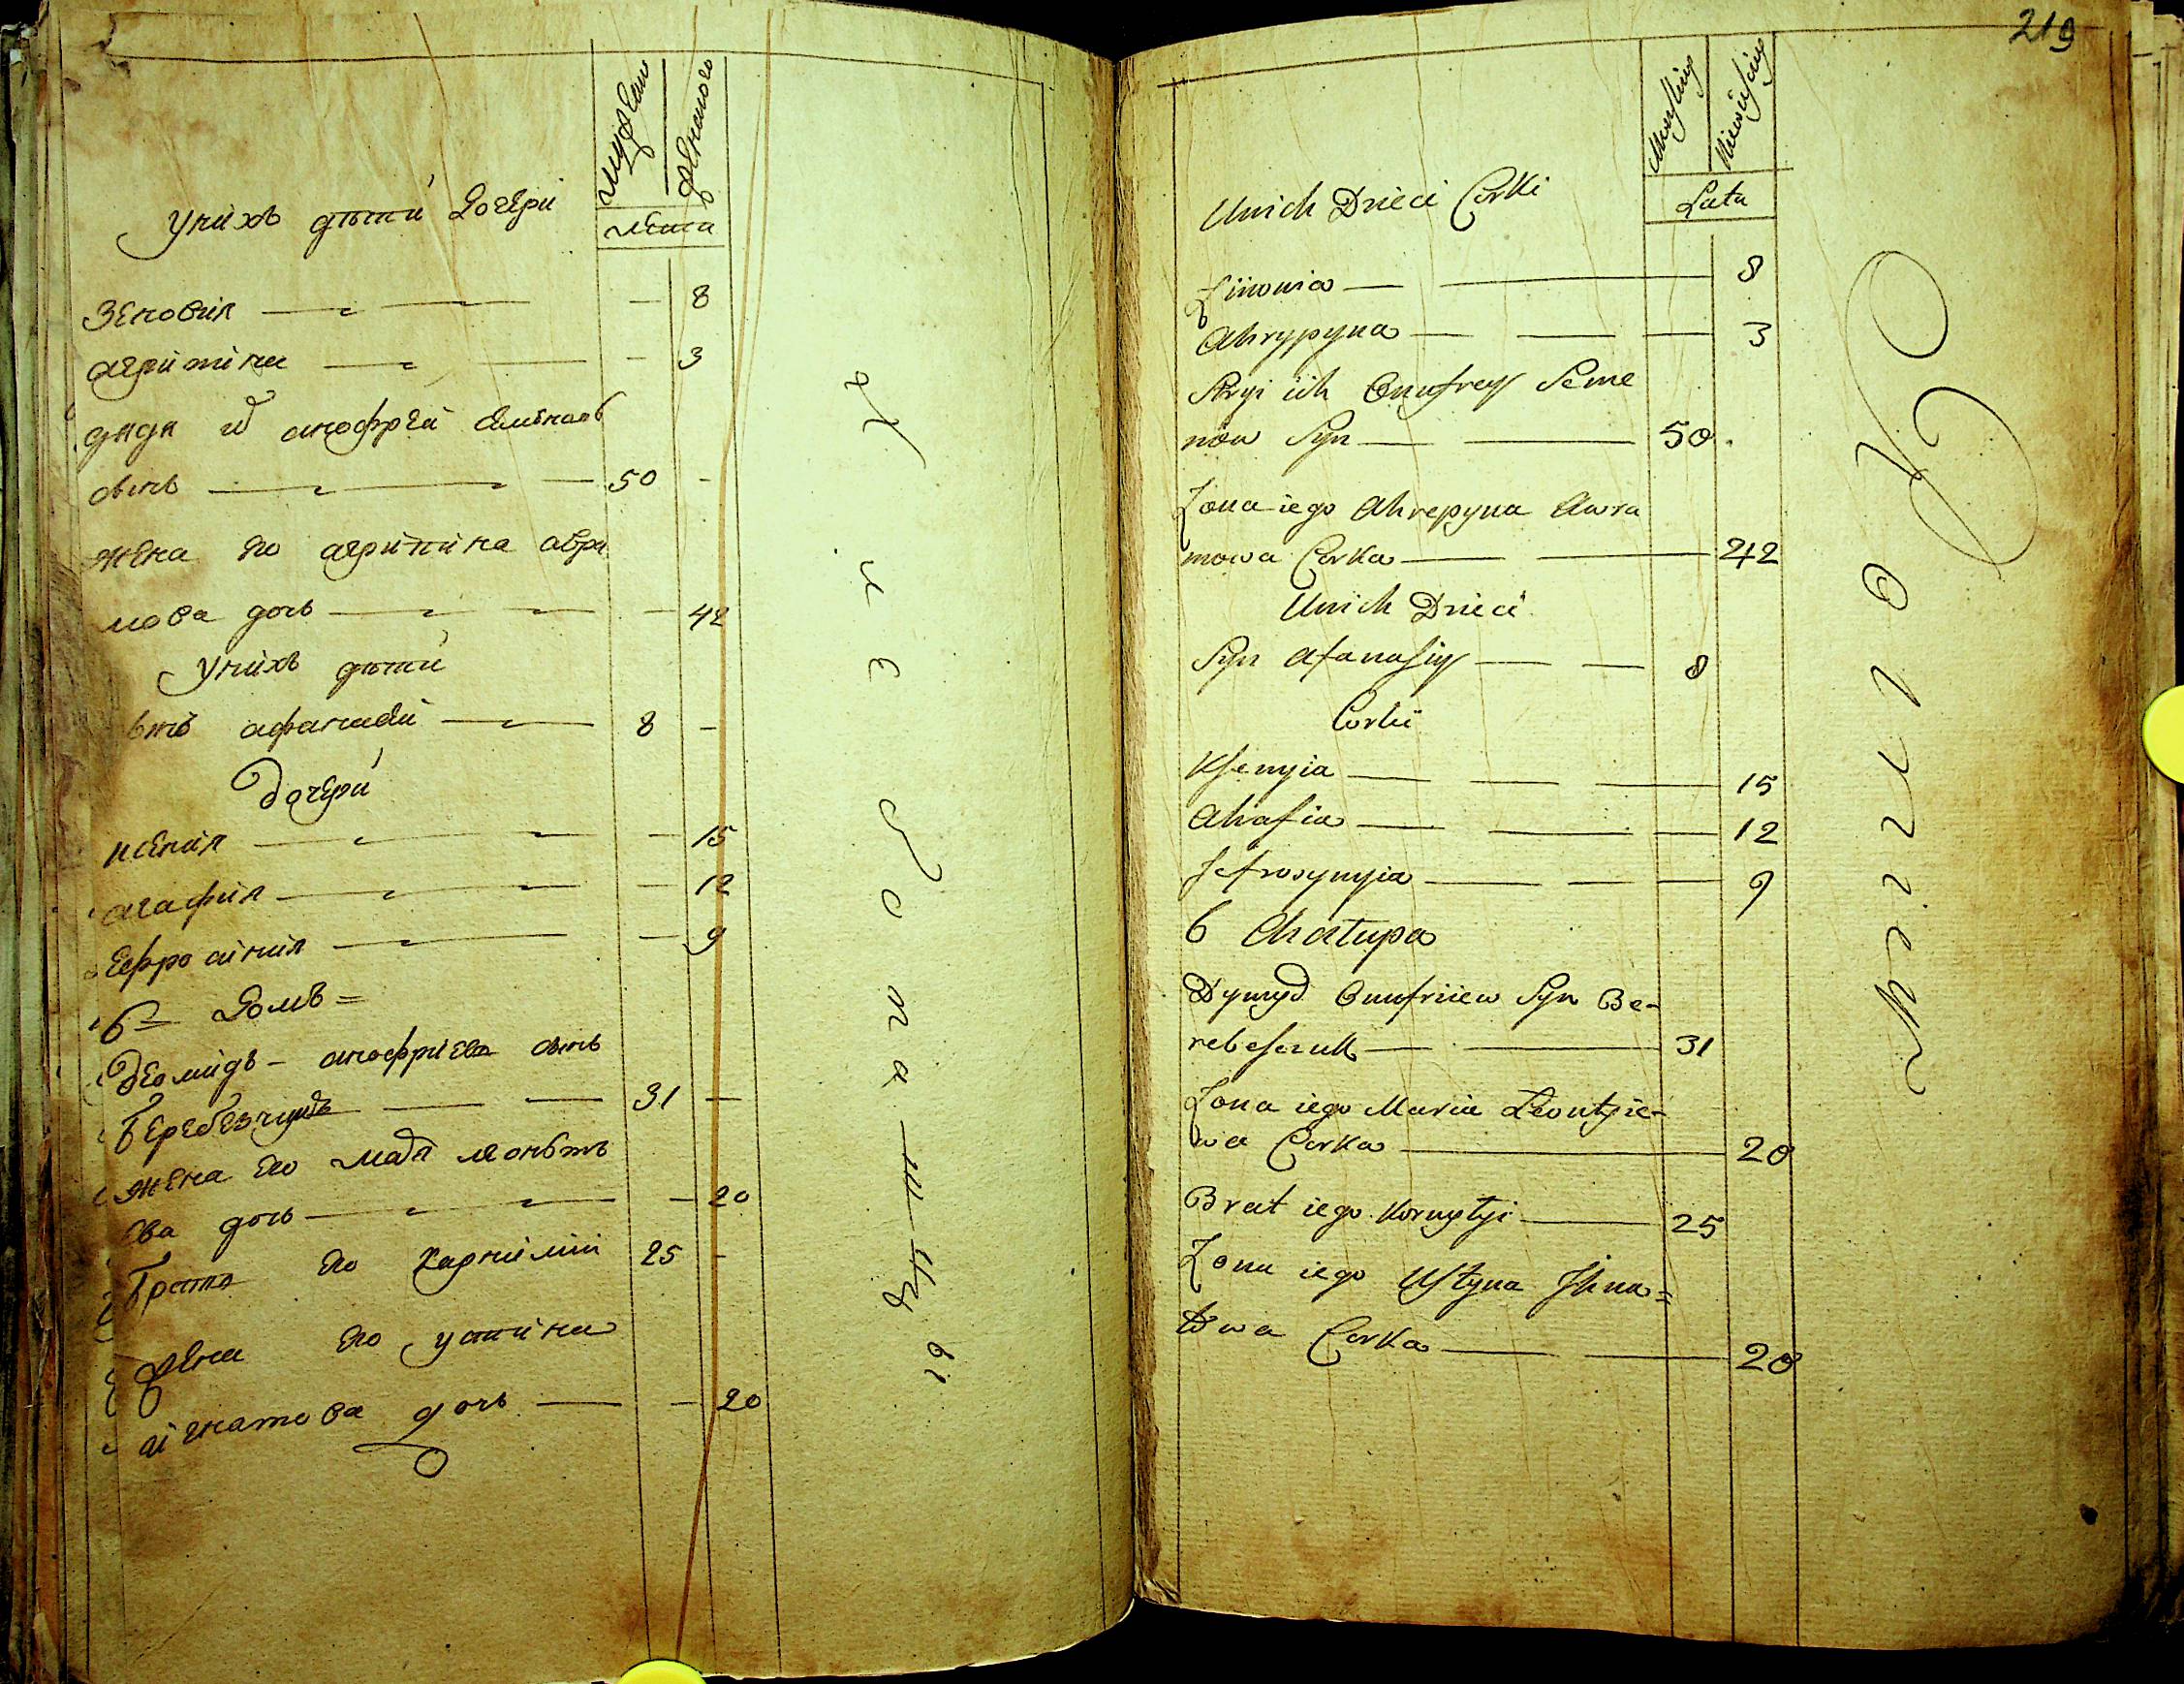 мужеска
женскаго
Унихъ дѣти дочери
лѣта
Зеновия — — — 8
агрипина — — — 3
дядя их анофрей семенов
сынъ — — — 50 -
жена его агрипина авра
мова дочь — — — 42
Унихъ дѣти
сынъ афанасей — 8 —
дочери
ксения — — — 15
агафия — — — 12
Ефросиния — — — 9
6 Домъ =
Деомидъ — анофриева сынъ
Беребезчукъ — — 31 —
жена его марія леонть
ева дочь — — — 20
Братъ его Карнилии 25 -
жена его устина
игнатова дочь — — 20
219
Męskiey
Niewieściey
Unich Dzieci Corki
Lata
Zinowia — — 8
Ahrypyna — — — 3
Stryi ich Onufrey Seme
now Syn — — 50.
Zona iego Ahrepyna Awra
mowa Corka — — 42
Unich Dzieci
Syn Afanasiy — — 8
Corki
Ksenyia — — — 15
Ahafia — — — 12
Jefrosynyia — — — 9
6 Chałupa
Dymyd Onufriiew Syn Be-
rebesczuk — — 31
Zona iego Maria Leontyie-
wa Corka — 20
Brat iego Kornyłyi — 25
Zona iego Ustyna Ihna=
towa Corka — — 20